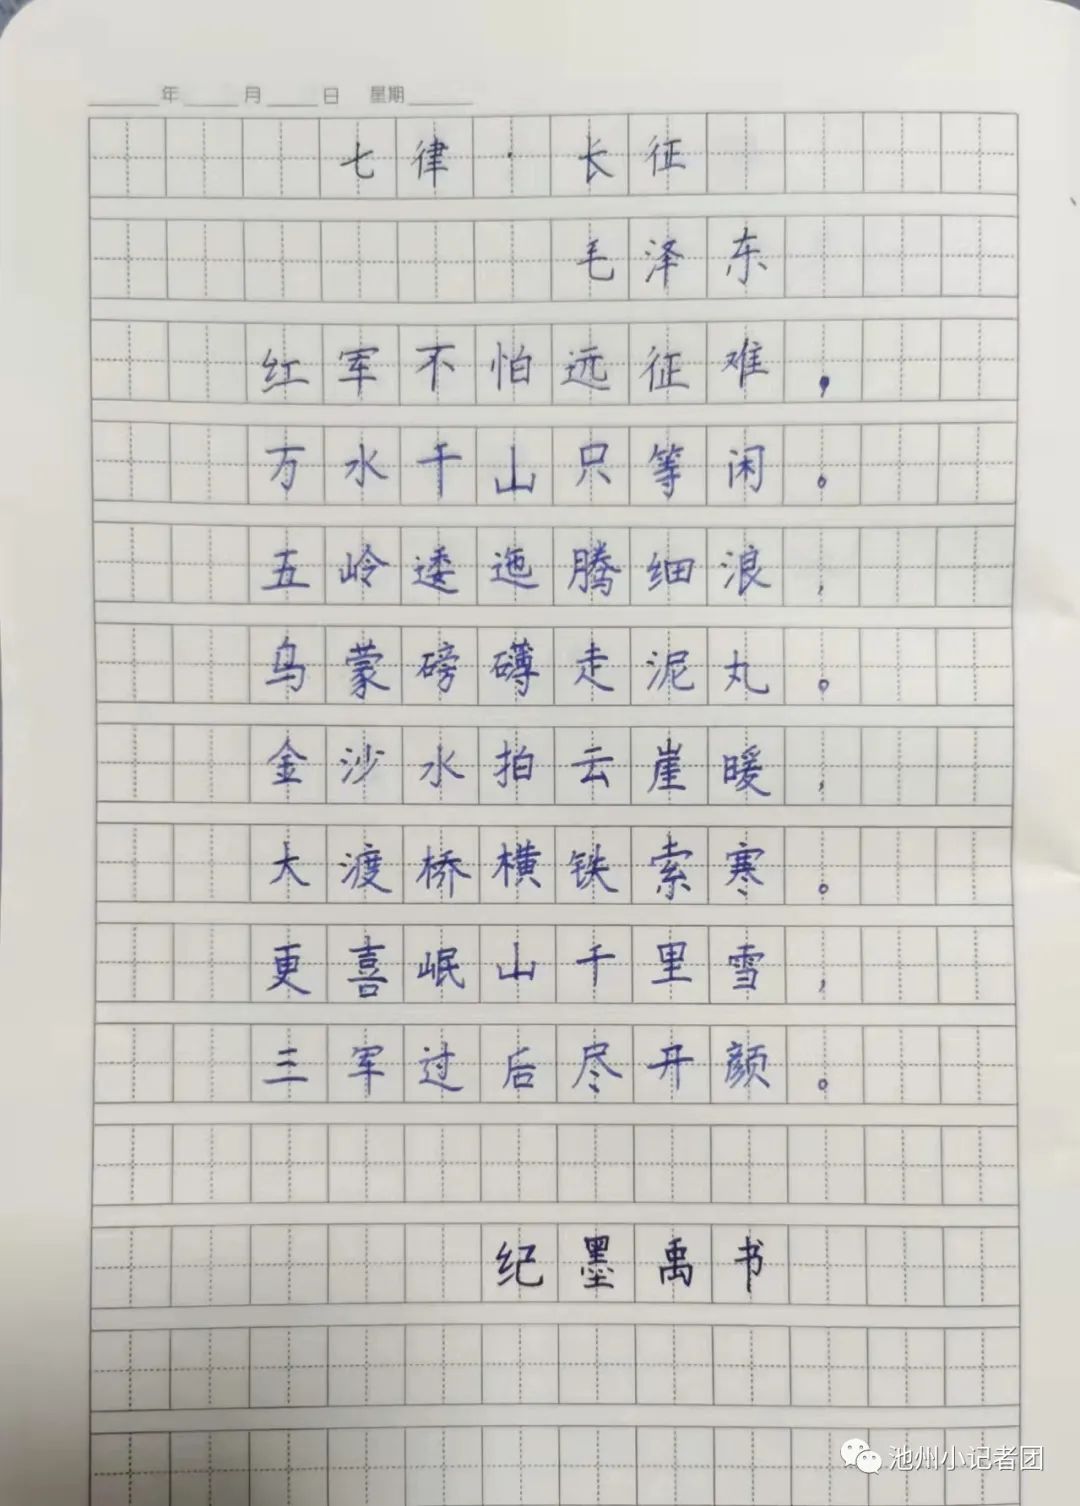 年 月 日 星期
七律·长征
毛泽东
红军不怕远征难，
万水千山只等闲。
五岭逶迤腾细浪，
乌蒙磅礴走泥丸。
金沙水拍云崖暖，
大渡桥横铁索寒。
更喜岷山千里雪，
三军过后尽开颜。
纪墨禹书
池州小记者团